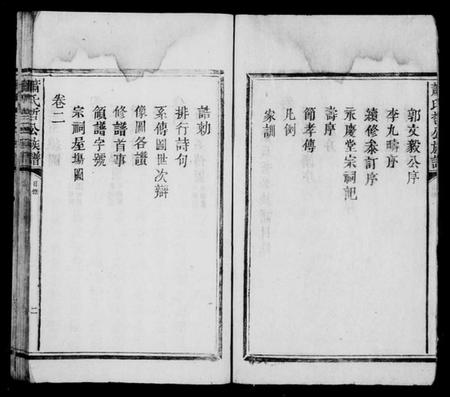 郭文毅公序
李九疇序
續修叅訂序
永慶堂宗祠記
壽序
節孝傳
凡例
家訓
誥勅
排行詩句
系傳圖世次辯
像圖各讚
修譜首事
領譜字號
宗祠屋塲圖
卷二
蕭氏哲公族譜
目錄
二